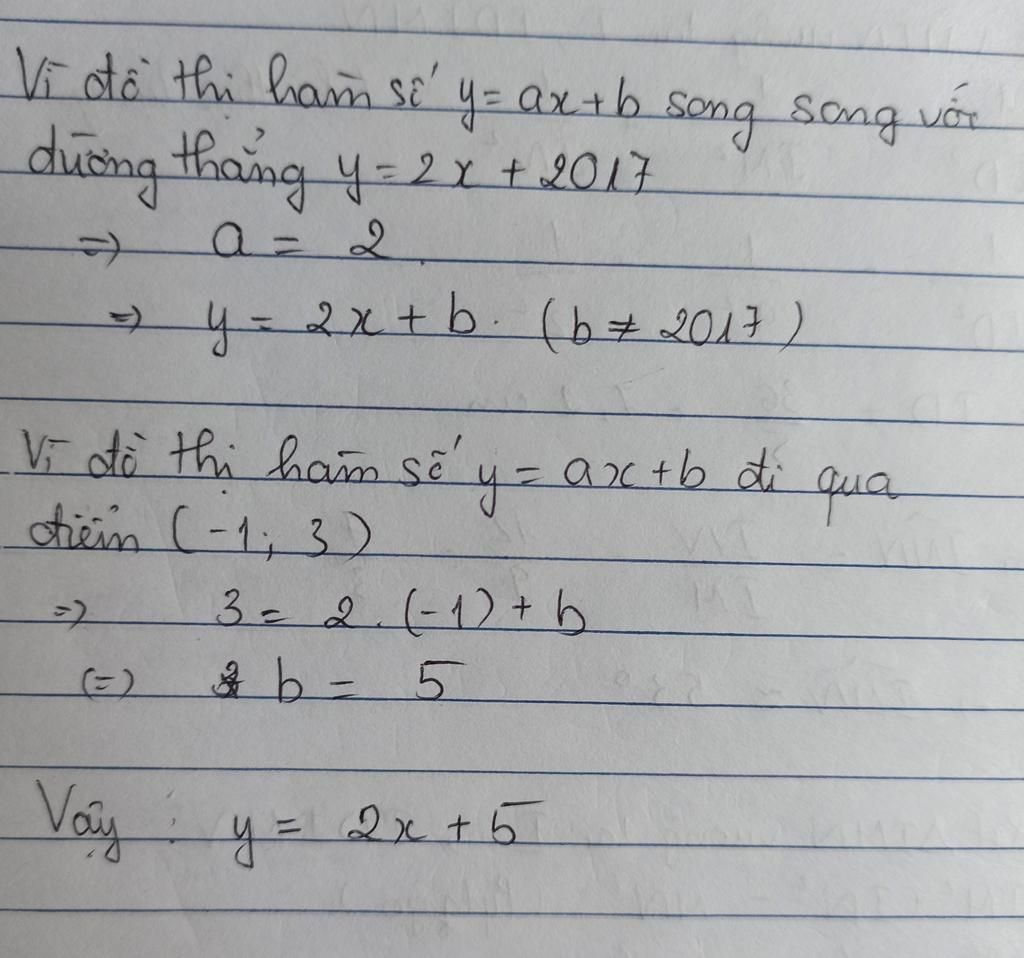 Vì đồ thị hàm số y = ax + b song song với
đường thẳng y = 2x + 2017
=> a = 2
=> y = 2x + b. (b ≠ 2017)
Vì đồ thị hàm số y = ax + b đi qua
điểm (-1; 3)
=> 3 = 2. (-1) + b
(=) b = 5
Vậy : y = 2x + 5